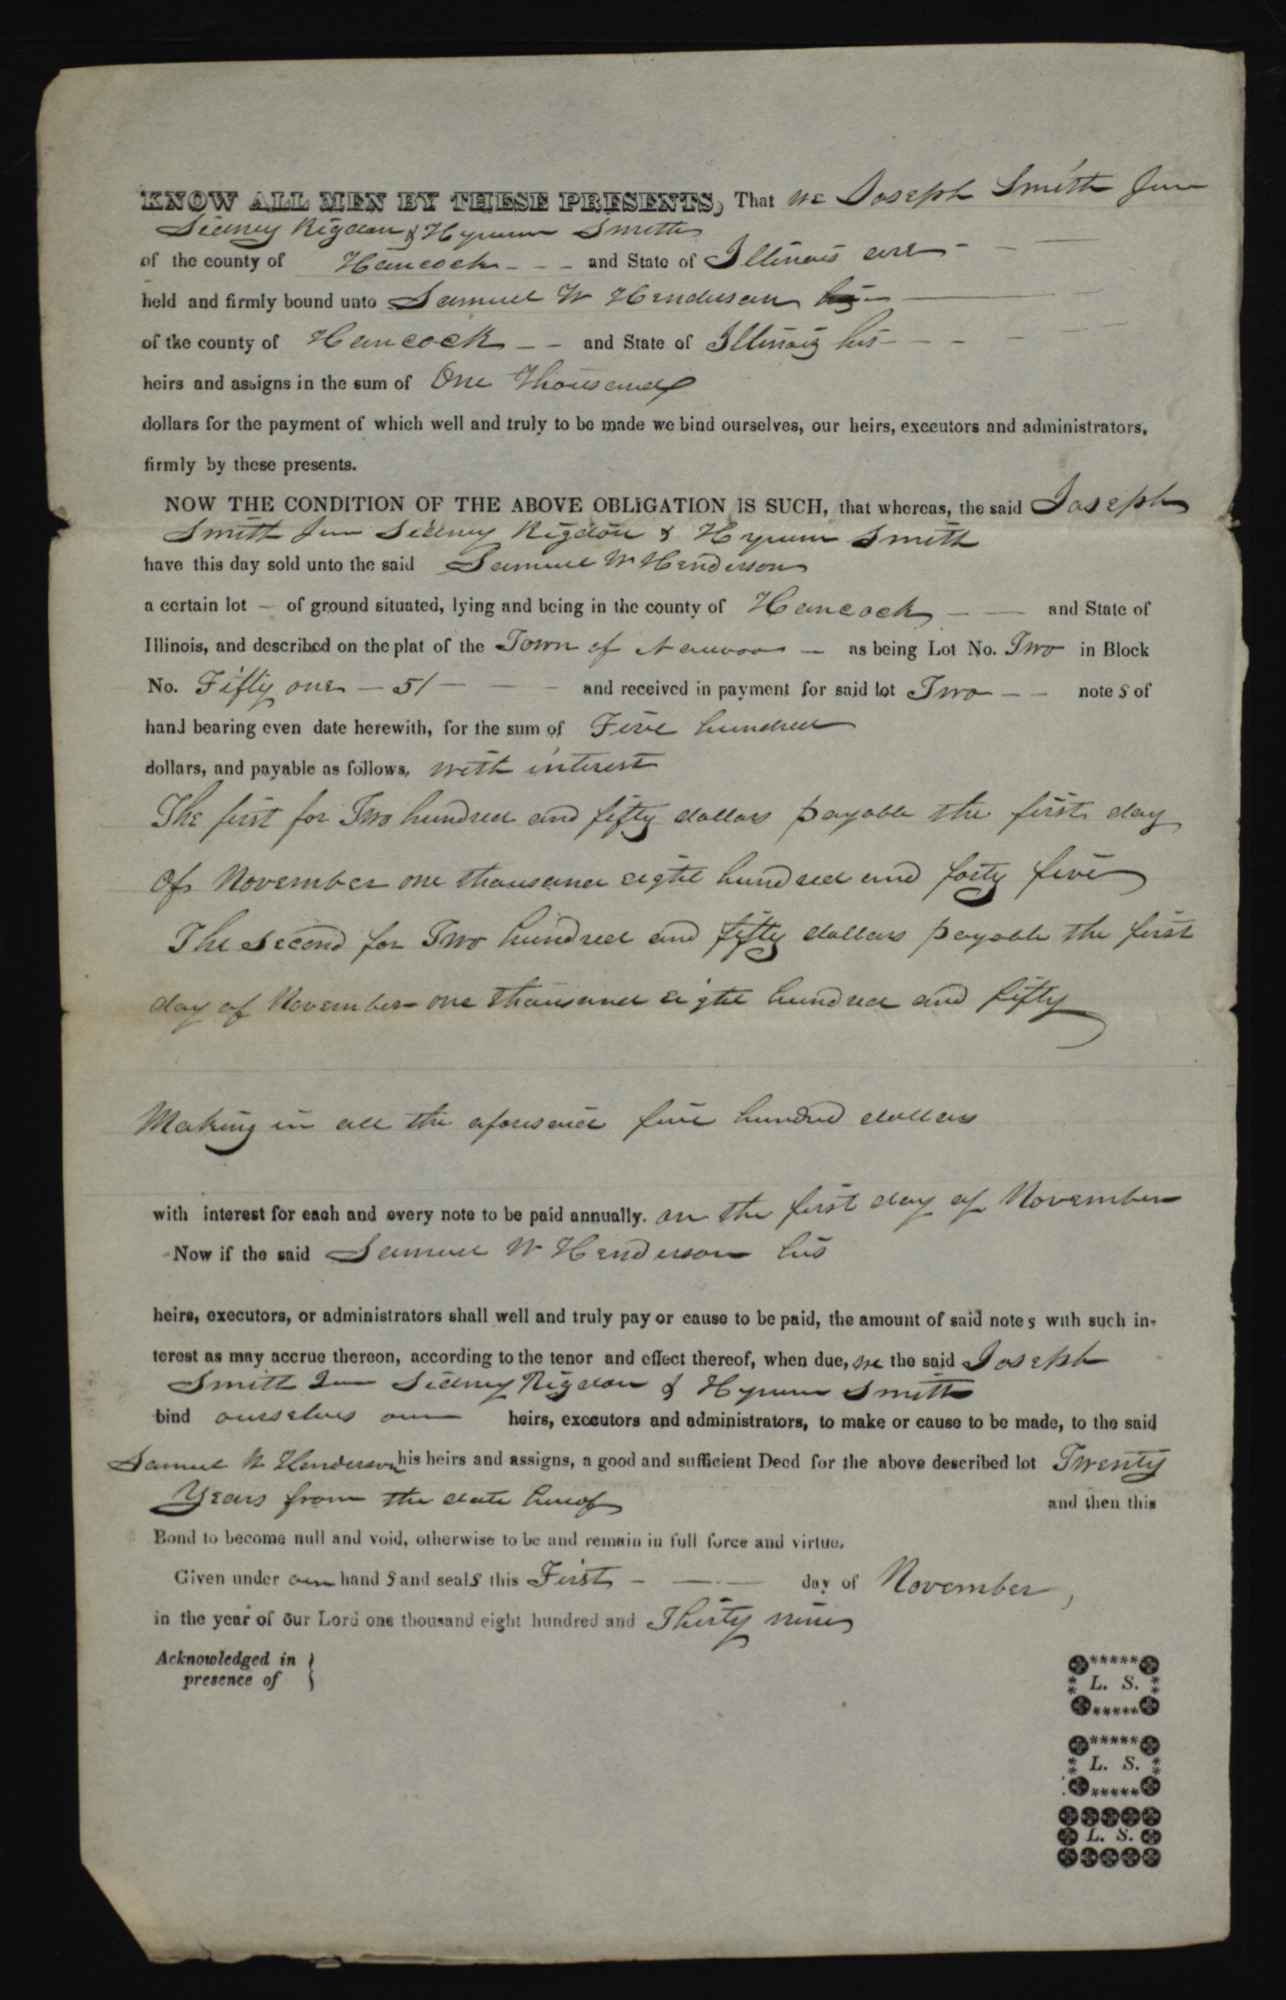 KNOW ALL MEN BY THESE PRESENTS, That we Joseph Smith Jun
Sidney Rigdon & Hyrum Smith
of the county of Hancock - - - and State of Illinois are - - —
held and firmly bound unto Samuel W Henderson
of tke county of Hancock - - and State of Illinois his - - - -
heirs and assigns in the sum of One Thousand
dollars for the payment of which well and truly to be made we bind ourselves, our heirs, executors and administrators,
firmly by these presents.
NOW THE CONDITION OF THE ABOVE OBLIGATION IS SUCH, that whereas, the said Joseph
Smith Jun Sidney Rigdon & Hyrum Smith
have this day sold unto the said Samuel W Henderson
a certain lot — of ground situated, lying and being in the county of Hancock — — and State of
Illinois, and described on the plat of the Town of Nauvoo — as being Lot No. Two in Block
No. Fifty one — 51 — - - - and received in payment for said lot Two — - note s of
hand bearing even date herewith, for the sum of Five hundred
dollars, and payable as follows, with interest
The first for Two hundred and fifty dollars payable the first day
of November one thousand eight hundred and forty five
The second for Two hundred and fifty dollars payable the first
day of November one thousand eight hundred and fifty
Making in all the aforesaid five hundred dollars
with interest for each and every note to be paid annually. on the first day of November
Now if the said Samuel W Henderson his
heirs, executors, or administrators shall well and truly pay or cause to be paid, the amount of said note s with such in-
terest as may accrue thereon, according to the tenor and effect thereof, when due, we the said Joseph
Smith Jun Sidney Rigdon & Hyrum Smith
bind ourselves our heirs, executors and administrators, to make or cause to be made, to the said
Samuel W Henderson his heirs and assigns, a good and sufficient Deed for the above described lot Twenty
Years from the date hereof and then this
Bond to become null and void, otherwise to be and remain in full force and virtue.
Given under our hand s and seal s this First - — — day of November,
in the year of our Lord one thousand eight hundred and Thirty nine
Acknowledged in }
presence of
L. S.
L. S.
L. S.